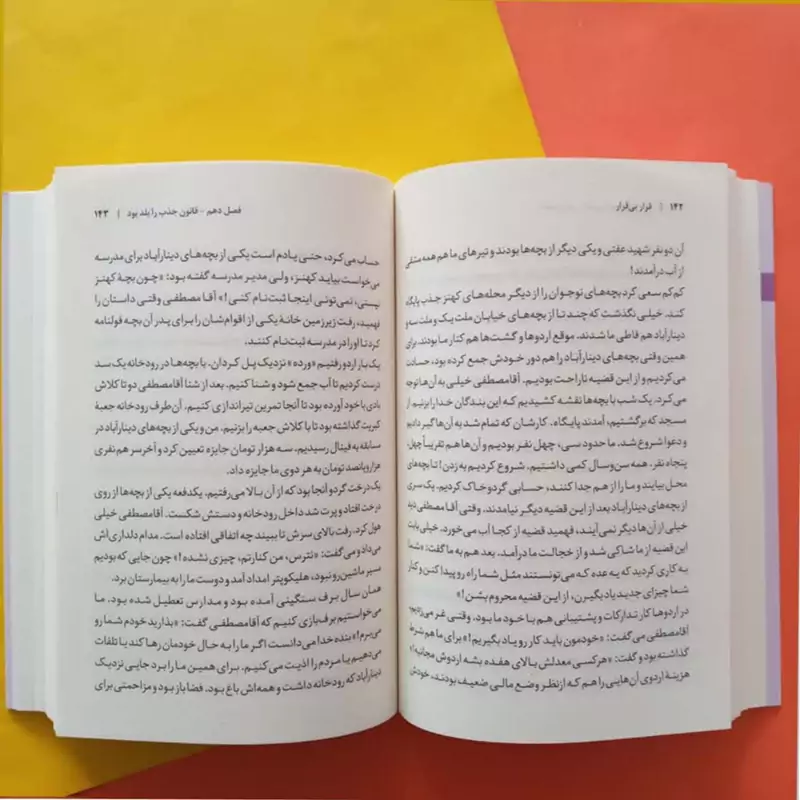 ۱۴۲ | قرار بی‌قرار
آن دو نفر شهید عفتی و یکی دیگر از بچه‌ها بودند و تیرهای ما هم همه مشقی
از آب درآمدند!
کم‌کم سعی کرد بچه‌های نوجوان را از دیگر محله‌های کهنز جذب پایگاه
کند. خیلی نگذشت که چند تا از بچه‌های خیابان ملت یک و ملت سه و
دینارآباد هم قاطی ما شدند. موقع اردوها و گشت‌ها هم کنار ما بودند. برای
همین وقتی بچه‌های دینارآباد را هم دور خودش جمع کرده بود، حسادت
می‌کردیم و از این قضیه ناراحت بودیم. آقامصطفی خیلی به آن‌ها توجه
می‌کرد. یک شب با بچه‌ها نقشه کشیدیم که این بندگان خدا را بزنیم. از
مسجد که برگشتیم، آمدند پایگاه. کارشان که تمام شد به آن‌ها گیر دادیم
و دعوا شروع شد. ما حدود سی، چهل نفر بودیم و آن‌ها هم تقریباً چهل،
پنجاه نفر. همه سن‌وسال کمی داشتیم. شروع کردیم به زدن! تا بچه‌های
محل بیایند و ما را از هم جدا کنند، حسابی گردوخاک کردیم. یک سری
از بچه‌های دینارآباد بعد از این قضیه دیگر نیامدند. وقتی آقامصطفی دید
خیلی از آن‌ها دیگر نمی‌آیند، فهمید قضیه از کجا آب می‌خورد. خیلی بابت
این قضیه از ما شاکی شد و از خجالت ما درآمد. بعد هم به ما گفت: «شما
یه کاری کردید که یه عده که می‌تونستند مثل شما راه رو پیدا کنن و کنار
شما چیزای جدید یاد بگیرن، از این قضیه محروم بشن!»
در اردوها کار تدارکات و پشتیبانی هم با خود ما بود. وقتی غر می‌زدیم،
آقامصطفی می‌گفت: «خودمون باید کار رو یاد بگیریم!» برای ما هم شرط
گذاشته بود و گفت: «هرکسی معدلش بالای هفده بشه اردوش مجانیه!»
هزینهٔ اردوی آن‌هایی را هم که ازنظر وضع مالی ضعیف بودند، خودش
فصل دهم - قانون جذب را بلد بود | ۱۴۳
حساب می‌کرد، حتی یادم است یکی از بچه‌های دینارآباد برای مدرسه
می‌خواست بیاید کهنز، ولی مدیر مدرسه گفته بود: «چون بچهٔ کهنز
نیستی، نمی‌تونی اینجا ثبت‌نام کنی!» آقا مصطفی وقتی داستان را
فهمید، رفت زیرزمین خانهٔ یکی از اقوام‌شان را برای پدر آن بچه قولنامه
کرد تا او را در مدرسه ثبت‌نام کنند.
یک بار اردو رفتیم «ورده» نزدیک پل کردان. با بچه‌ها در رودخانه یک سد
درست کردیم تا آب جمع شود و شنا کنیم. بعد از شنا آقامصطفی دو تا کلاش
بادی با خود آورده بود تا آنجا تمرین تیراندازی کنیم. آن‌طرف رودخانه جعبهٔ
کبریت گذاشته بود تا با کلاش جعبه را بزنیم. من و یکی از بچه‌های دینارآباد در
مسابقه به فینال رسیدیم. سه هزار تومان جایزه تعیین کرد و آخر سر هم نفری
هزار و پانصد تومان به هر دوی ما جایزه داد.
یک درخت گردو آنجا بود که از آن بالا می‌رفتیم. یکدفعه یکی از بچه‌ها از روی
درخت افتاد و پرت شد داخل رودخانه و دستش شکست. آقامصطفی خیلی
هول کرد. رفت بالای سرش تا ببیند چه اتفاقی افتاده است. مدام دلداری‌اش
می‌داد و می‌گفت: «نترس، من کنارتم، چیزی نشده!» چون جایی که بودیم
مسیر ماشین‌رو نبود، هلیکوپتر امداد آمد و دوست ما را به بیمارستان برد.
همان سال برف سنگینی آمده بود و مدارس تعطیل شده بود. ما
می‌خواستیم برف‌بازی کنیم که آقامصطفی گفت: «بذارید خودم شما رو
می‌برم!» بنده خدا می‌دانست اگر ما را به حال خودمان رها کند یا تلفات
می‌دهیم یا مردم را اذیت می‌کنیم. برای همین ما را برد جایی نزدیک
دینارآباد که رودخانه داشت و همه‌اش باغ بود. فضا باز بود و مزاحمتی برای